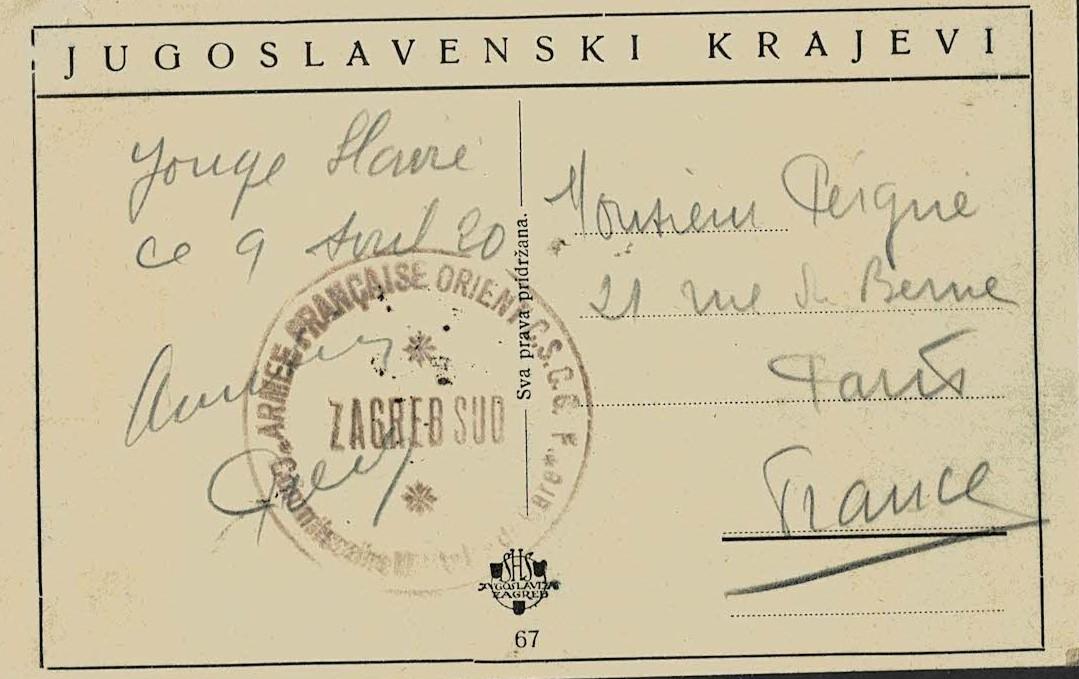 JUGOSLAVENSKI KRAJEVI
Yougo Slavie
ce 9 Avril 20
Monsieur Peigné
21 rue de Berne
Paris
France
Sva prava pridržana.
ARMEE FRANÇAISE ORIENT C.S.C.G. F.
ZAGREB SUD
Commissaire
SHS
JUGOSLAVIJA
ZAGREB
67